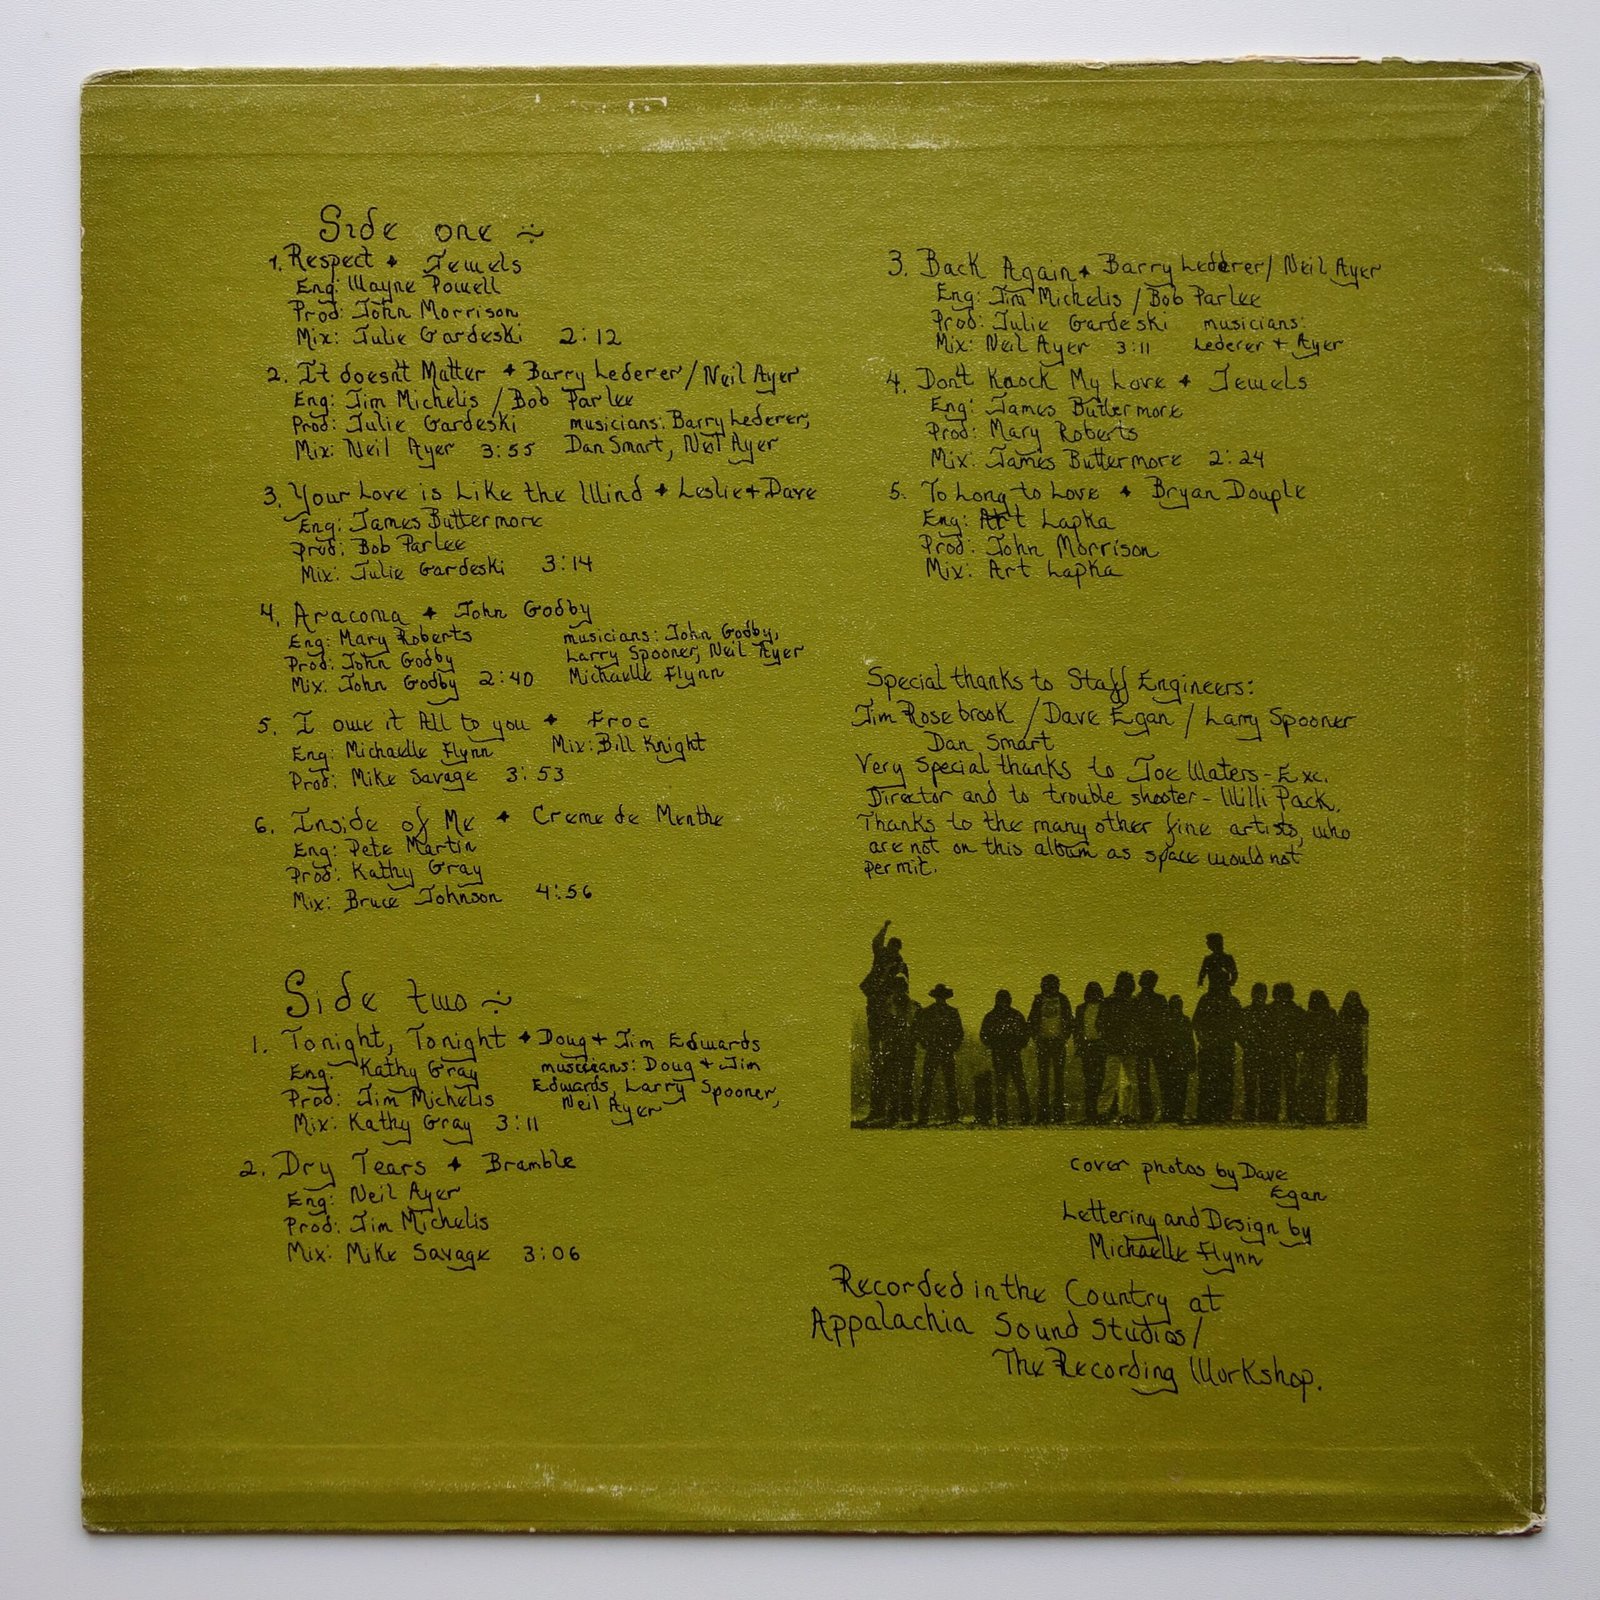 Side one ÷
1. Respect + Jewels
Eng: Wayne Powell
Prod: John Morrison
Mix: Julie Gardeski 2:12
2. It doesn't Matter + Barry Lederer/Neil Ayer
Eng: Jim Michelis / Bob Parlee
Prod: Julie Gardeski musicians: Barry Lederer,
Mix: Neil Ayer 3:55 Dan Smart, Neil Ayer
3. Your Love is Like the Wind + Leslie + Dave
Eng: James Buttermore
Prod: Bob Parlee
Mix: Julie Gardeski 3:14
4. Aracoma + John Godby
Eng: Mary Roberts musicians: John Godby,
Prod: John Godby Larry Spooner, Neil Ayer
Mix: John Godby 2:40 Michaelle Flynn
5. I owe it All to you + Froc
Eng: Michaelle Flynn Mix: Bill Knight
Prod: Mike Savage 3:53
6. Inside of Me + Creme de Menthe
Eng: Pete Martin
Prod: Kathy Gray
Mix: Bruce Johnson 4:56
Side two ÷
1. Tonight, Tonight + Doug + Jim Edwards
Eng: Kathy Gray musicians: Doug + Jim
Prod: Jim Michelis Edwards, Larry Spooner,
Mix: Kathy Gray 3:11 Neil Ayer
2. Dry Tears + Bramble
Eng: Neil Ayer
Prod: Jim Michelis
Mix: Mike Savage 3:06
3. Back Again + Barry Lederer/Neil Ayer
Eng: Jim Michelis / Bob Parlee
Prod: Julie Gardeski musicians:
Mix: Neil Ayer 3:11 Lederer + Ayer
4. Don't Knock My Love + Jewels
Eng: James Buttermore
Prod: Mary Roberts
Mix: James Buttermore 2:24
5. To Long to Love + Bryan Douple
Eng: Art Lapka
Prod: John Morrison
Mix: Art Lapka
Special thanks to Staff Engineers:
Jim Rosebrook / Dave Egan / Larry Spooner
Dan Smart
Very Special thanks to Joe Waters - Exc.
Director and to trouble shooter - Willi Pack.
Thanks to the many other fine artists, who
are not on this album as space would not
permit.
cover photos by Dave
Egan
Lettering and Design by
Michaelle Flynn
Recorded in the Country at
Appalachia Sound Studios/
The Recording Workshop.